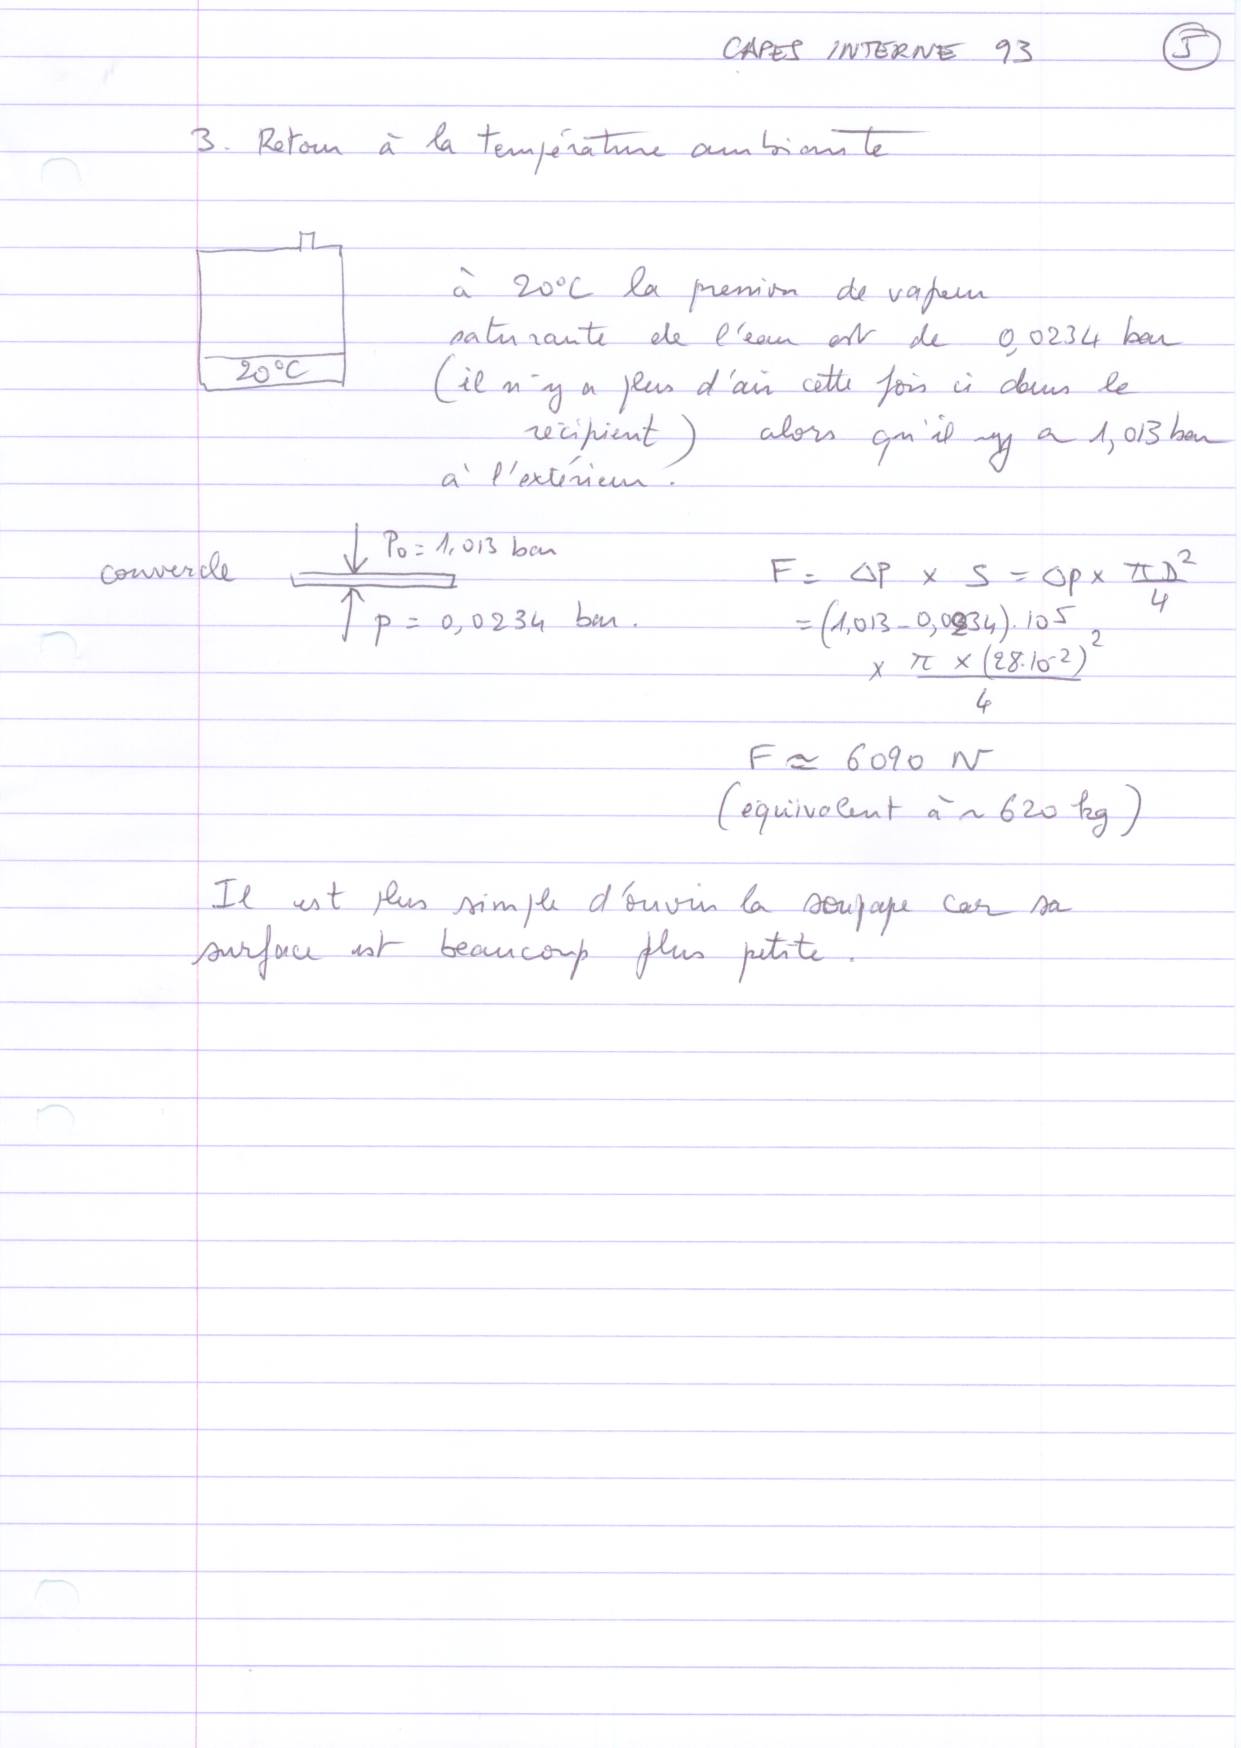 CAPES INTERNE 93 5
3. Retour à la température ambiante
à 20°C la pression de vapeur
saturante de l'eau est de 0,0234 bar
20°C
(il n'y a plus d'air cette fois ci dans le
récipient) alors qu'il y a 1,013 bar
à l'extérieur.
couvercle
P₀ = 1,013 bar
p = 0,0234 bar.
F = ΔP × S = Δp × πD²/4
= (1,013 - 0,0234).10⁵
× π × (28.10⁻²)²/4
F ≃ 6090 N
(équivalent à ~ 620 kg)
Il est plus simple d'ouvrir la soupape car sa
surface est beaucoup plus petite.